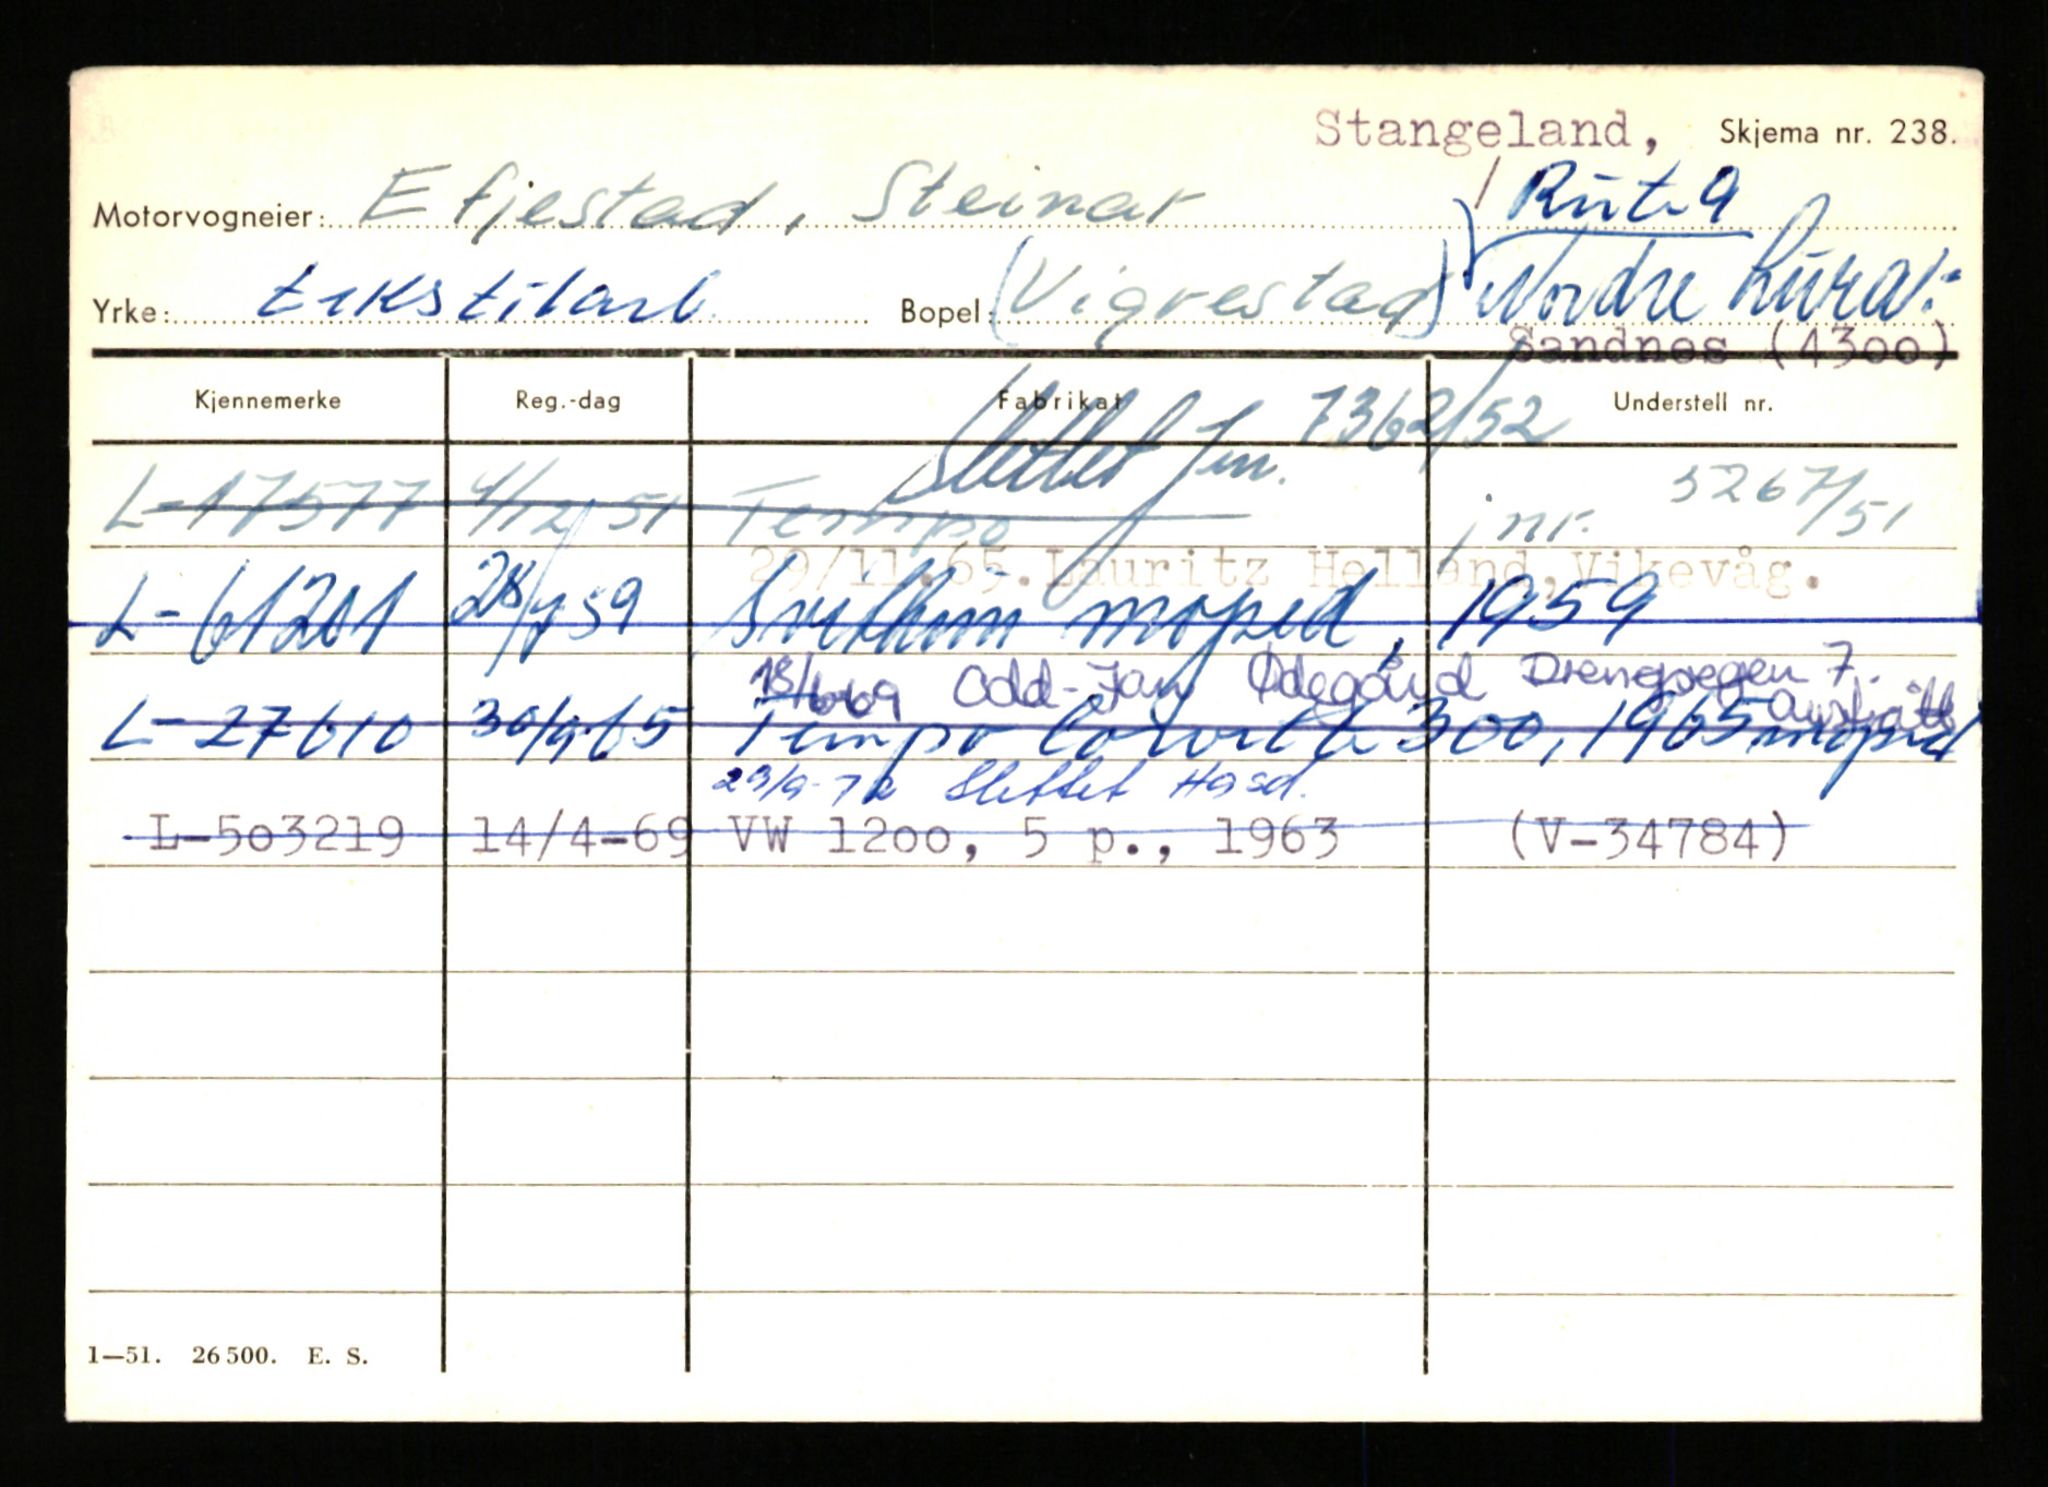 Stangeland, Skjema nr. 238.
Motorvogneier: Efjestad, Steinar Rute 9
Yrke: tekstilarb. Bopel: (Vigrestad) Nordre Lurav.
Sandnes (4300)
Kjennemerke Reg.-dag Fabrikat Understell nr.
Slettet Jnr. 7362/52
L-17577 4/12 51 Tempo jnr. 5267/51
29/11.65. Lauritz Helland, Vikevåg.
L-61201 28/7 59 Svithun moped, 1959
18/6 69 Odd-Jan Ødegård Drengsegen 7.
Austrått
L-27610 30/9 65 Tempo Corvette 300, 1965 moped
29/9-72 Slettet Hgsd.
L-503219 14/4-69 VW 1200, 5 p., 1963 (V-34784)
1—51. 26500. E. S.